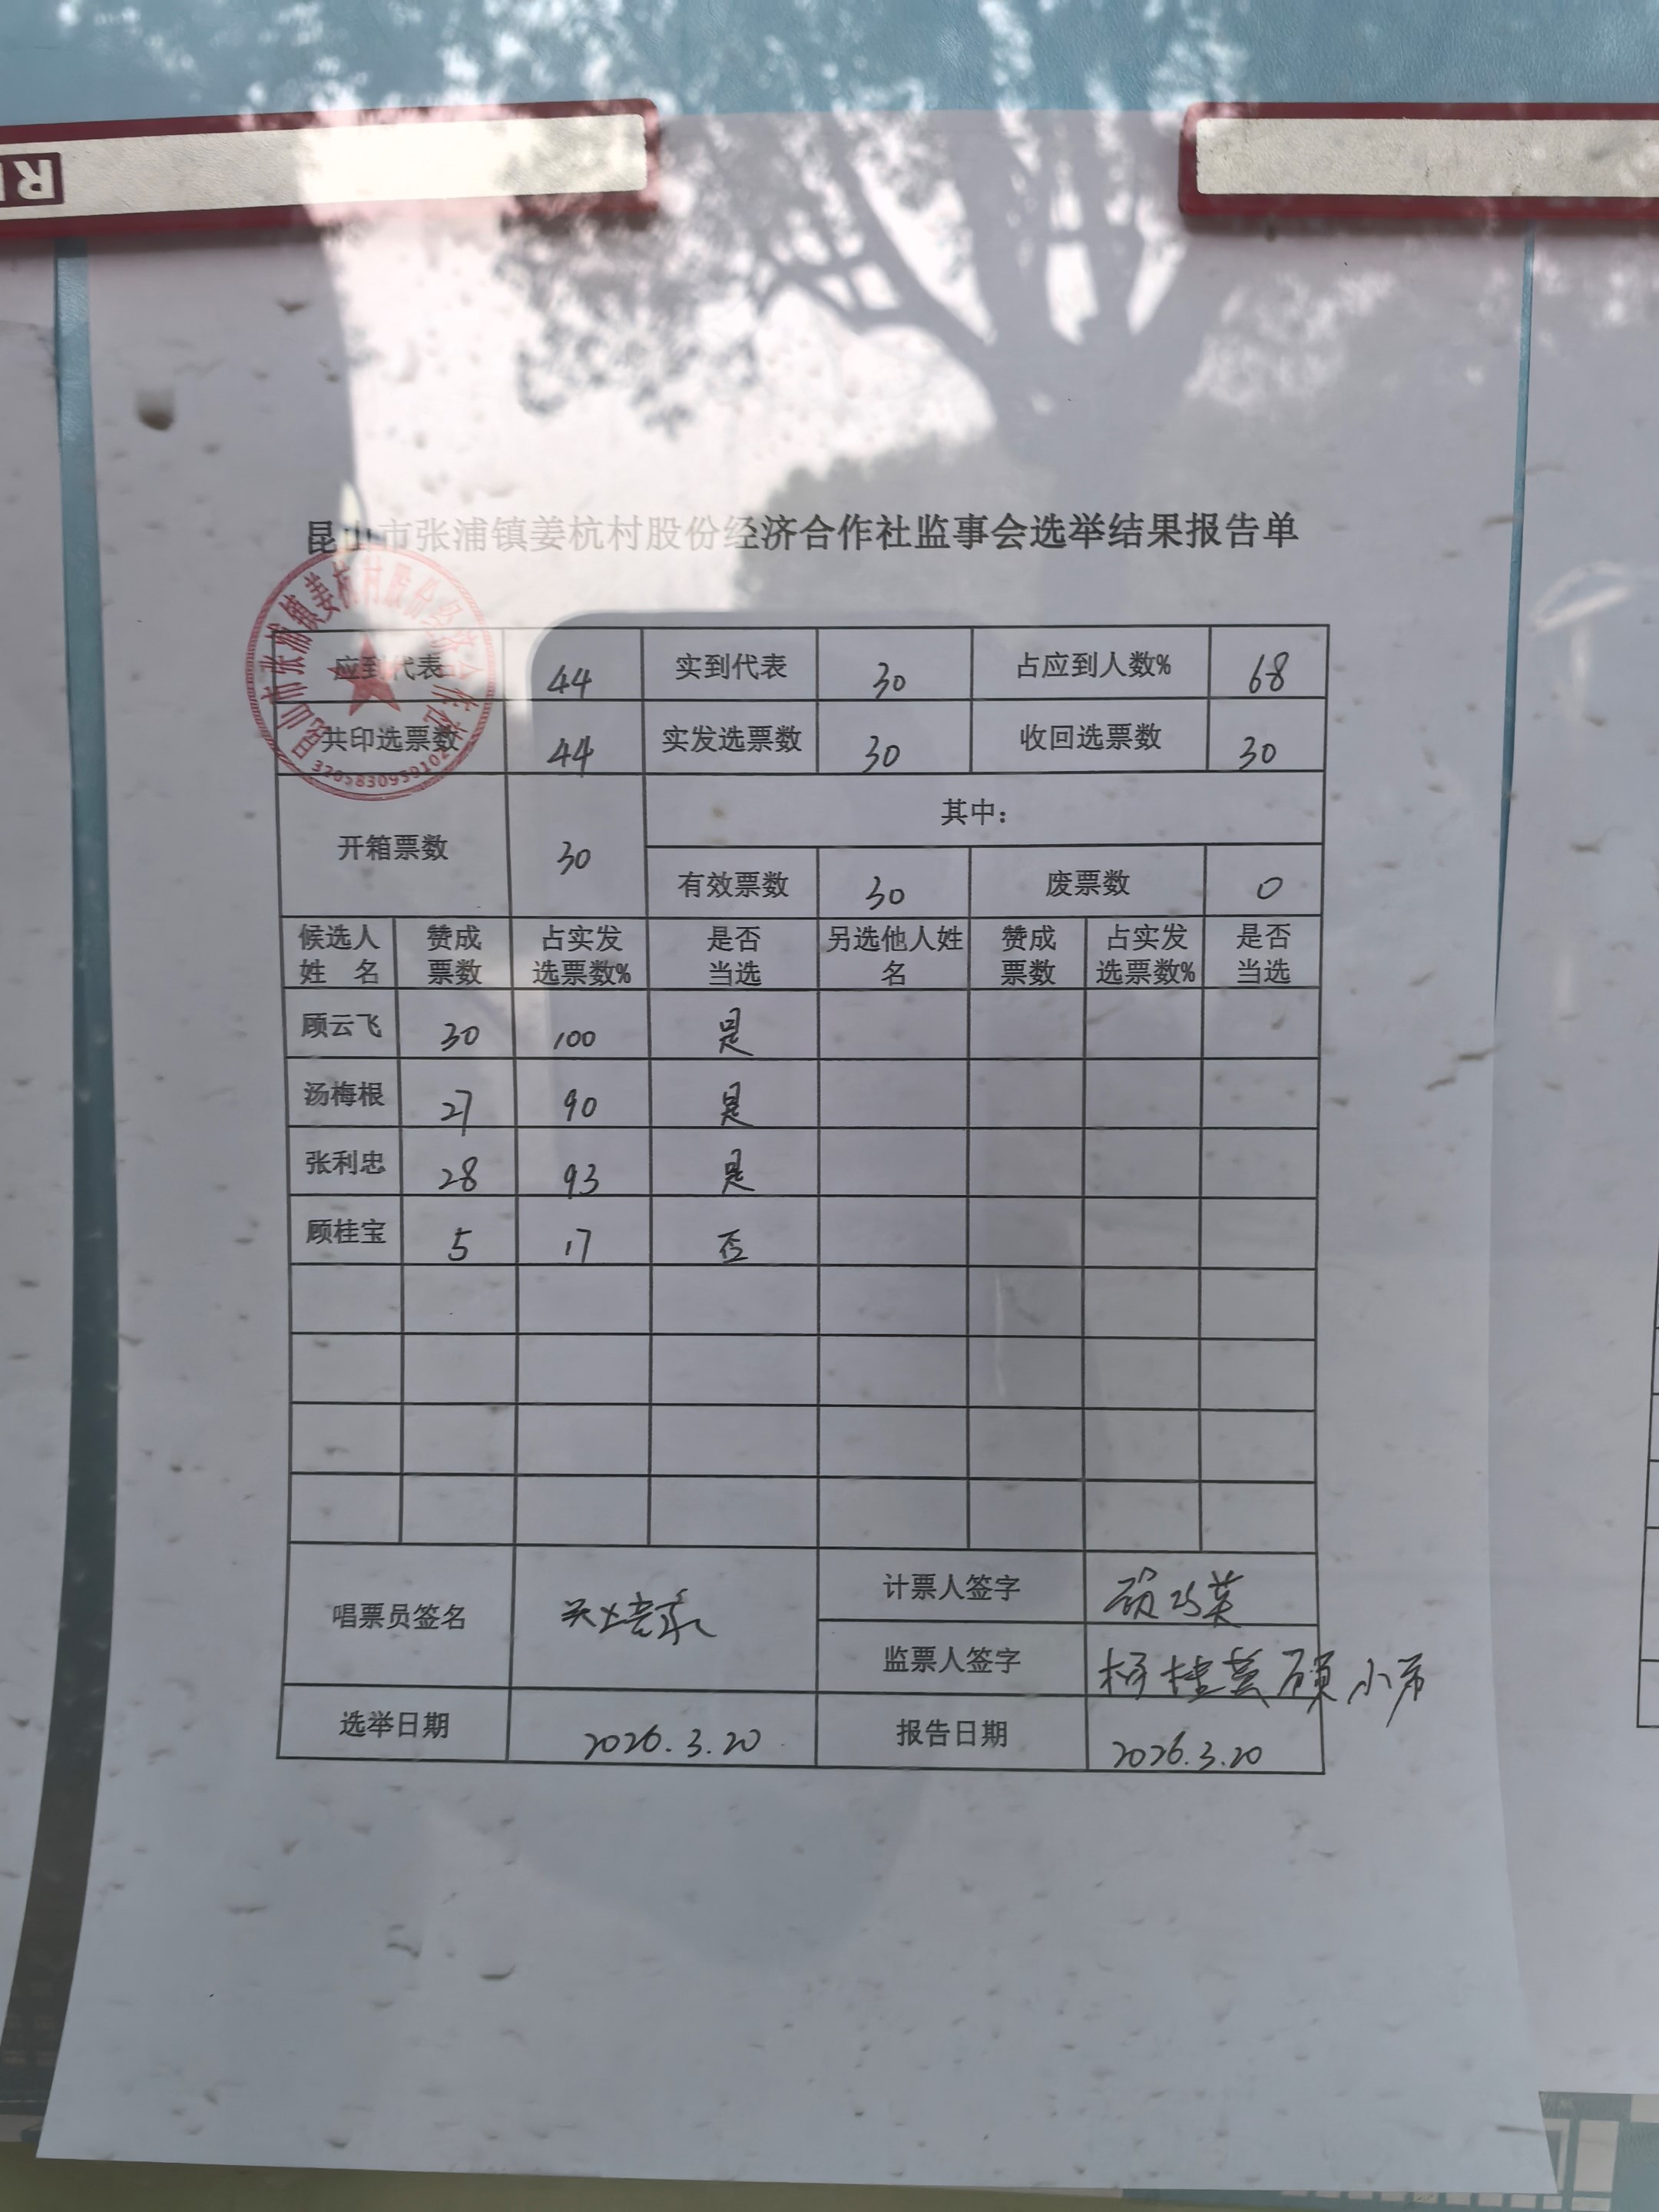 昆山市张浦镇姜杭村股份经济合作社监事会选举结果报告单
应到代表 44 实到代表 30 占应到人数% 68
共印选票数 44 实发选票数 30 收回选票数 30
开箱票数 30 其中:
有效票数 30 废票数 0
候选人姓 名 赞成票数 占实发选票数% 是否当选 另选他人姓名 赞成票数 占实发选票数% 是否当选
顾云飞 30 100 是
汤梅根 27 90 是
张利忠 28 93 是
顾桂宝 5 17 否
唱票员签名 计票人签字
监票人签字
选举日期 2026.3.20 报告日期 2026.3.20
昆山市张浦镇姜杭村股份经济合作社